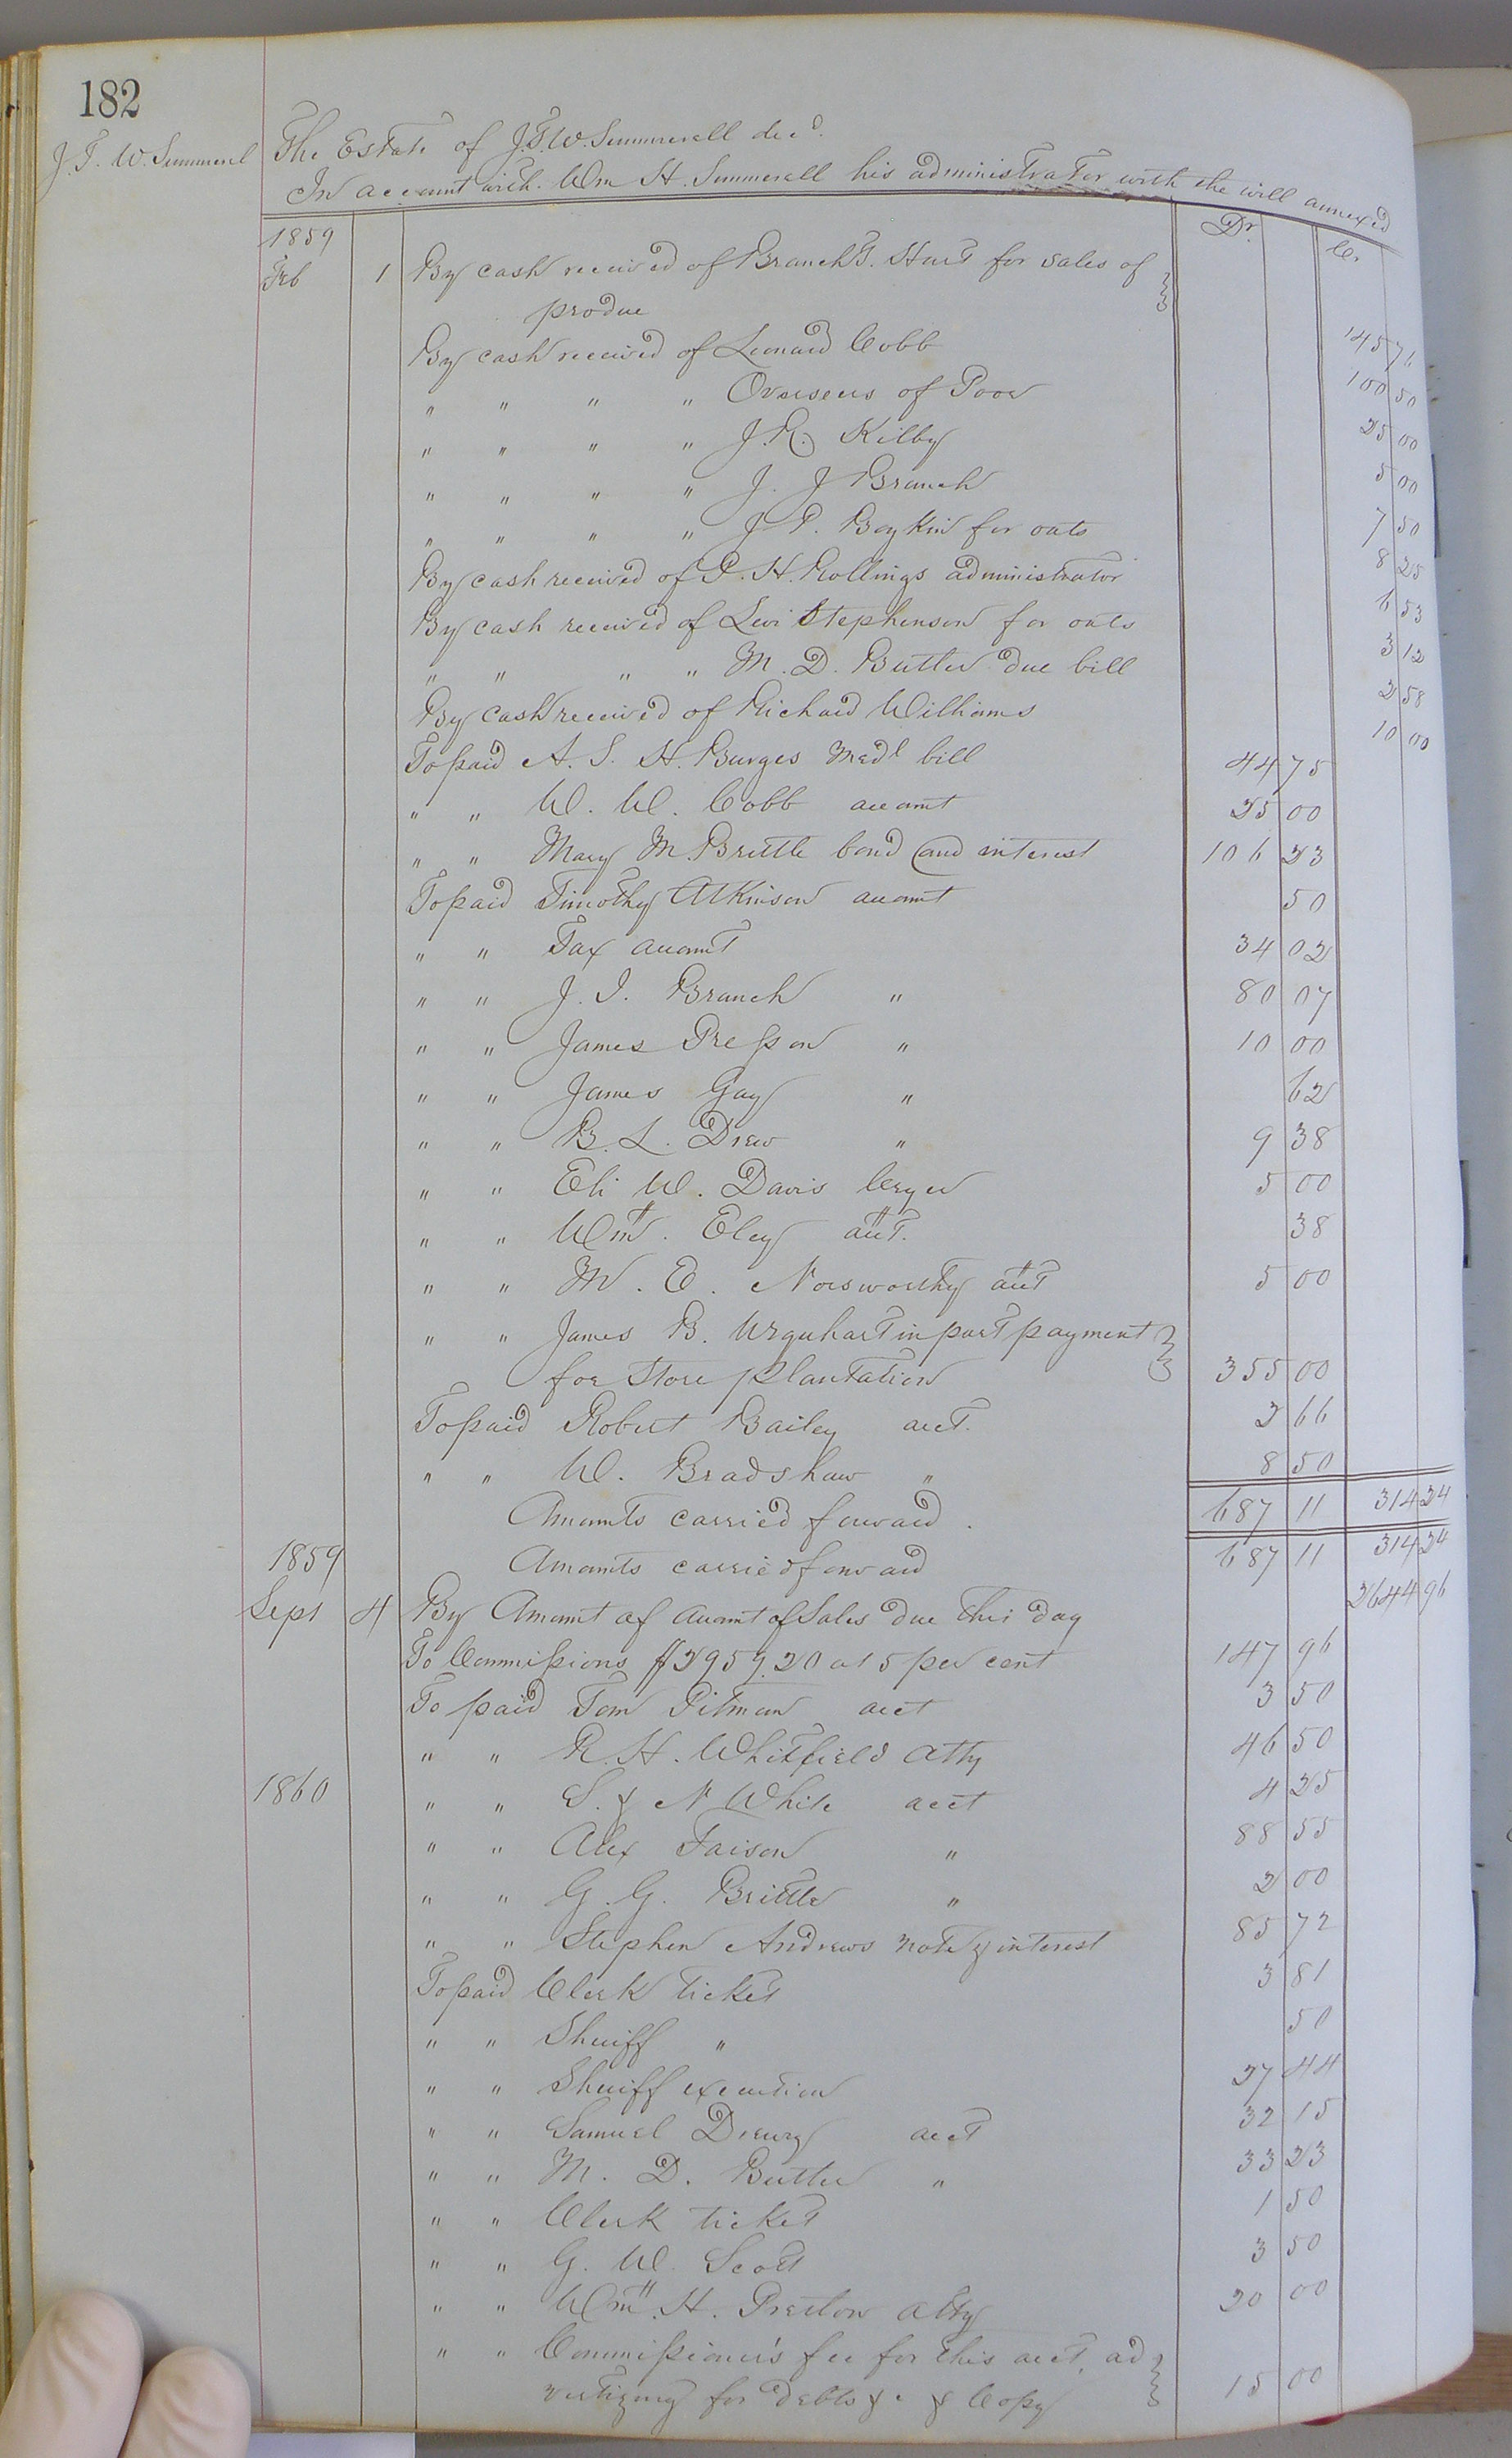 182
J. T. W. Summerel
The Estate of J.T.W. Summerell decd.
In account with Wm H. Summerell his administrator with the will annexed
Dr. Cr.
1859
Feb 1 By cash received of Branch T. Hurt for sales of
produe 145 71
By cash received of Leonard Cobb 100 50
" " " " Overseers of Poor 25 00
" " " " J. R. Kilby 5 00
" " " " J. J Branch 7 50
" " " " J. P. Boykin for oats 8 25
By cash received of P. H. Rollings administrator 6 53
By cash received of Levi Stephenson for oats 3 12
" " " " M. D. Butler due bill 2 58
By cash received of Richard Williams 10 00
To paid A. S. H. Burges Medl bill 44 75
" " W. W. Cobb account 25 00
" " Mary M. Brittle bond and interest 106 23
To paid Timothy Atkinson account 50
" " Tax account 34 02
" " J. J. Branch " 80 07
" " James Presson " 10 00
" " James Gay " 62
" " B. L. Drew " 9 38
" " Eli W. Davis Cryer 5 00
" " Wm. Eley acct. 38
" " M. E. Norsworthy acct 5 00
" " James B. Urquhart in part payment
for Store plantation 355 00
To paid Robert Bailey acct. 2 66
" " W. Bradshaw " 8 50
Amounts carried forward. 687 11 314 24
1859 Amounts carried forward 687 11 314 24
Sept 4 By Amount of account of Sales due this day 2644 96
To Commissions $2959.20 at 5 per cent 147 96
To paid Tom Pitman acct 3 50
" " R. H. Whitfield Atty 46 50
1860 " " S. & N White acct 4 25
" " Alex Faison " 88 55
" " G. G. Brittle " 2 00
" " Stephen Andrews note & interest 85 72
To paid Clerk ticket 3 81
" " Sheriff " 50
" " Sheriff execution 27 44
" " Samuel Drewry acct 32 15
" " M. D. Butler " 33 23
" " Clerk ticket 1 50
" " G. W. Scott 3 50
" " Wm. H. Preston Atty 20 00
" " Commissioner's fee for this acct, ad
vertizing for debts &c & Copy 15 00